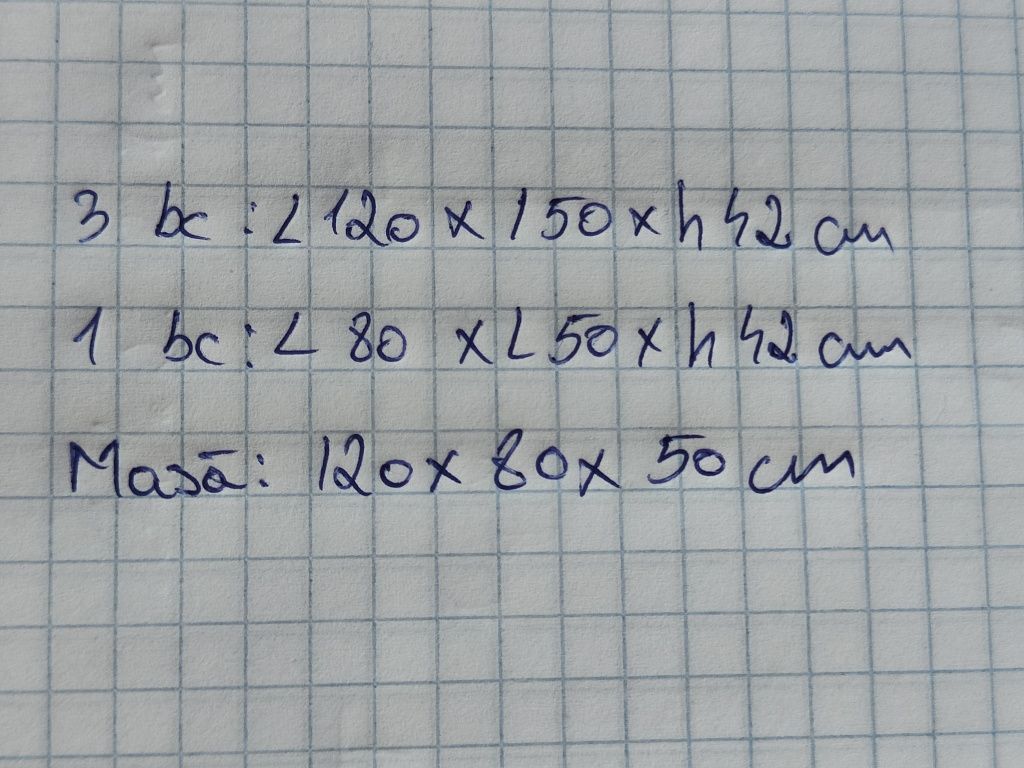 3 bc: L 120 x l 50 x h 42 cm
1 bc: L 80 x L 50 x h 42 cm
Masă: 120 x 80 x 50 cm